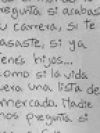 pregunta si acabas
u carrera, si te
asaste, si ya
ienes hijos...
omo si la vida
uera una lista de
mercado. Nadie
nos pregunta si